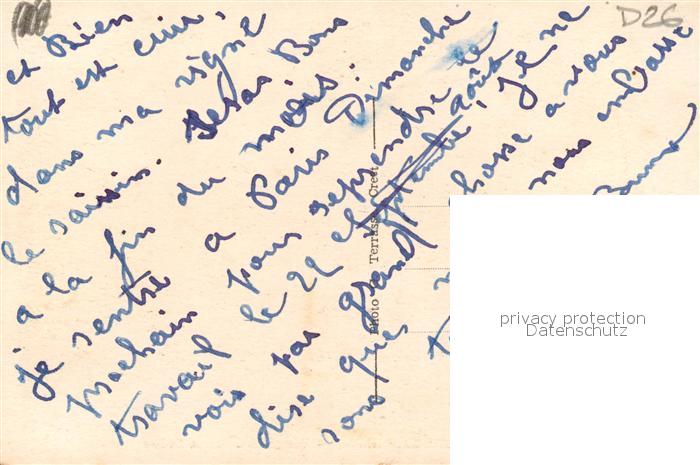 D26
et Bien
tout est cuit,
dans ma vigne
le raisin. Seras Bon
a la fin du mois.
je rentre a Paris Dimanche
prochain pour reprendre le
travail le 22 août
septembre, Je ne
vois pas grand chose a vous
dise que nous
sont nous embrasse
Bruno
Photo Terrasse Crest
privacy protection
Datenschutz